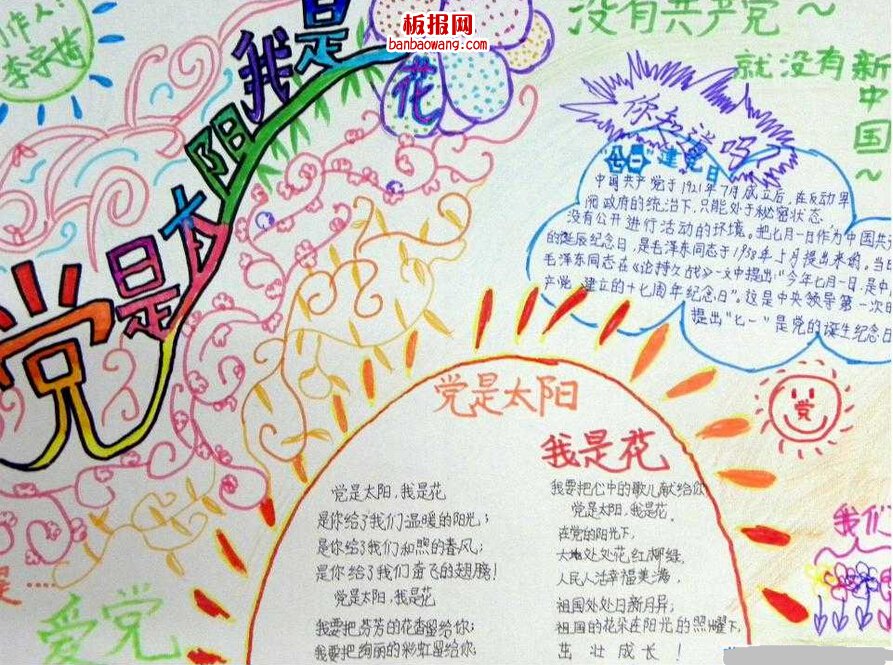 板报网
banbaowang.com
作人:
党是太阳我是花
没有共产党~
就没有新中国~
你知道吗?
“七一”建党日
中国共产党于1921年7月成立后,在反动军
阀政府的统治下,只能处于秘密状态,
没有公开进行活动的环境。把七月一日作为中国共
的诞辰纪念日,是毛泽东同志于1938年5月提出来的。当
毛泽东同志在《论持久战》一文中提出:“今年七月一日,是中
产党 建立的十七周年纪念日”。这是中央领导第一次
提出“七一”是党的诞生纪念日
党
党是太阳
我是花
党是太阳,我是花
是你给了我们温暖的阳光;
是你给了我们和煦的春风;
是你给了我们奋飞的翅膀!
党是太阳,我是花
我要把芬芳的花香留给你;
我要把绚丽的彩虹留给你
我要把心中的歌儿献给你
党是太阳,我是花。
在党的阳光下,
大地处处花红柳绿,
人民人活幸福美满,
祖国处处日新月异;
祖国的花朵在阳光的照耀下,
茁壮成长!
我们
爱党